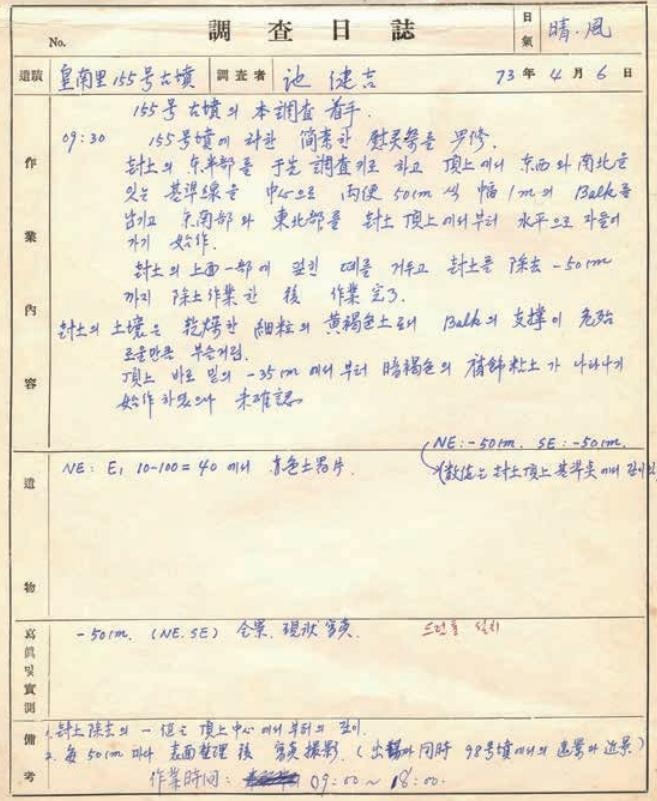 No. 調査日誌 日氣 晴·風
遺蹟 皇南里 155号 古墳 調査者 池健吉 73年 4月 6日
作業内容
155号 古墳의 本調査 着手.
09:30 155号墳에 관한 简素한 慰灵祭를 
封土의 东半部를 于先 調査키로 하고 頂上에서 东西와 南北을
잇는 基準線을 中心으로 両便 50cm씩 幅 1m의 Balk를
남기고 东南部와 東北部를 封土 頂上에서부터 水平으로 
가기 始作.
封土의 上面 一部에 덮힌 떼를 거두고 封土를 除去 -50cm
까지 除土作業한 後 作業 完了.
封土의 土壤은 乾燥한 細粒의 黄褐色土로서 Balk의 支撑이 危殆
로울만큼 부슨거림.
頂上 바로 밑의 -35cm에서부터 暗褐色의 腐飾粘土가 나타나기
始作하였으나 未確認
NE:-50cm. SE:-50cm.
(数値는 封土頂上 基準点에서 깊이임)
遺物
NE: E, 10-100=40에서 青色土器片.
寫眞및實測
-50cm. (NE.SE) 全景. 現状 寫真. 드런통 설치
備考
1. 封土除去의 - 値는 頂上中心에서부터의 깊이.
2. 每 50cm 마다 表面整理 後 寫真 撮影. (同時 98号墳에서의 遠景과 近景.)
作業時间: 09:00~18:00.